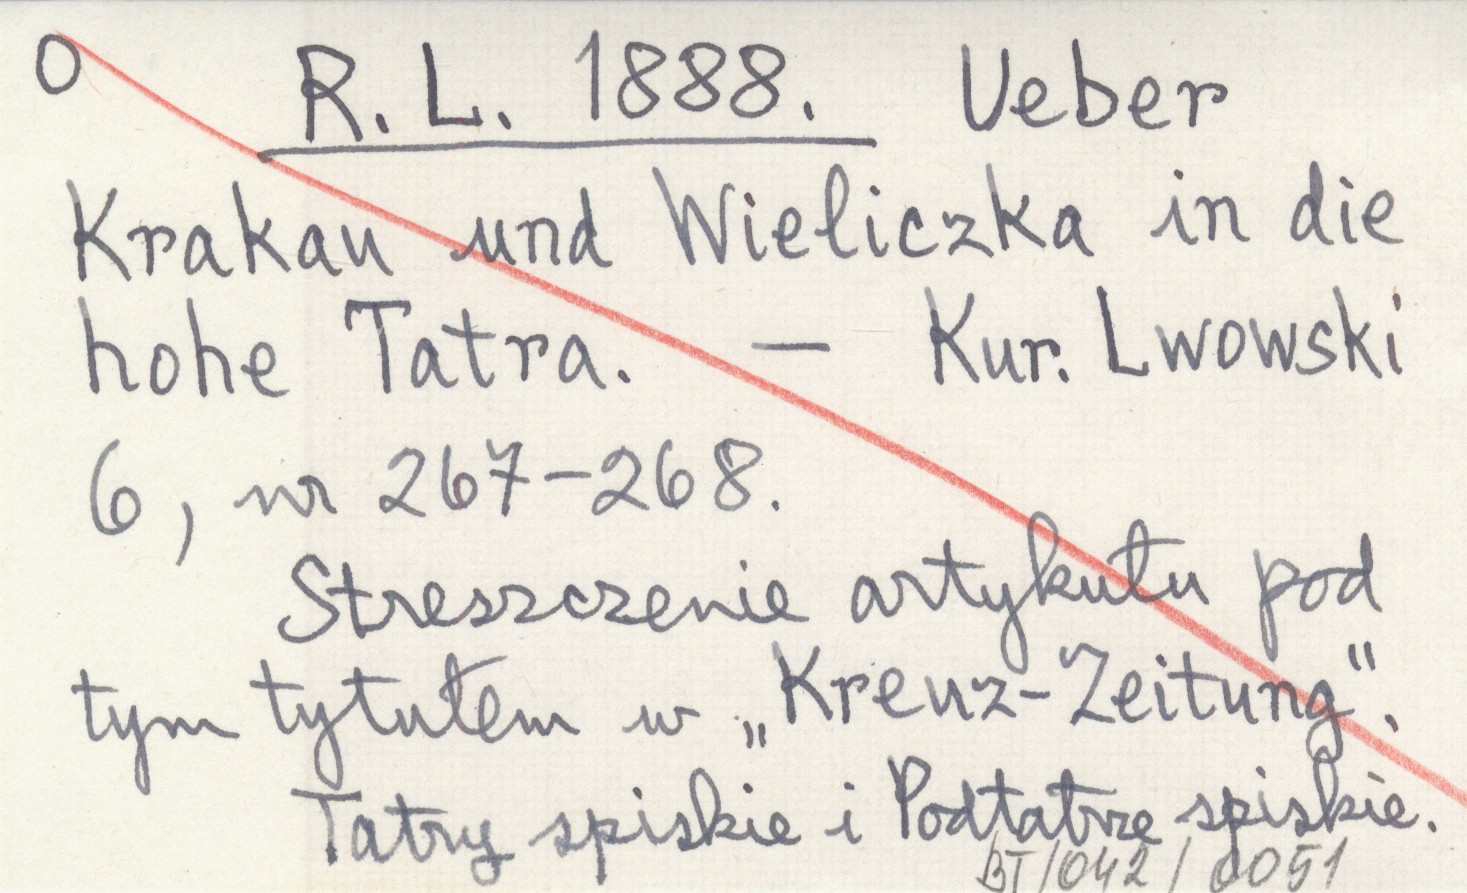 O R. L. 1888. Ueber
Krakau und Wieliczka in die
hohe Tatra. — Kur. Lwowski
6, nr 267-268.
Streszczenie artykułu pod
tym tytułem w „Kreuz-Zeitung".
Tatry spiskie i Podtatrze spiskie.
BT/042/0051